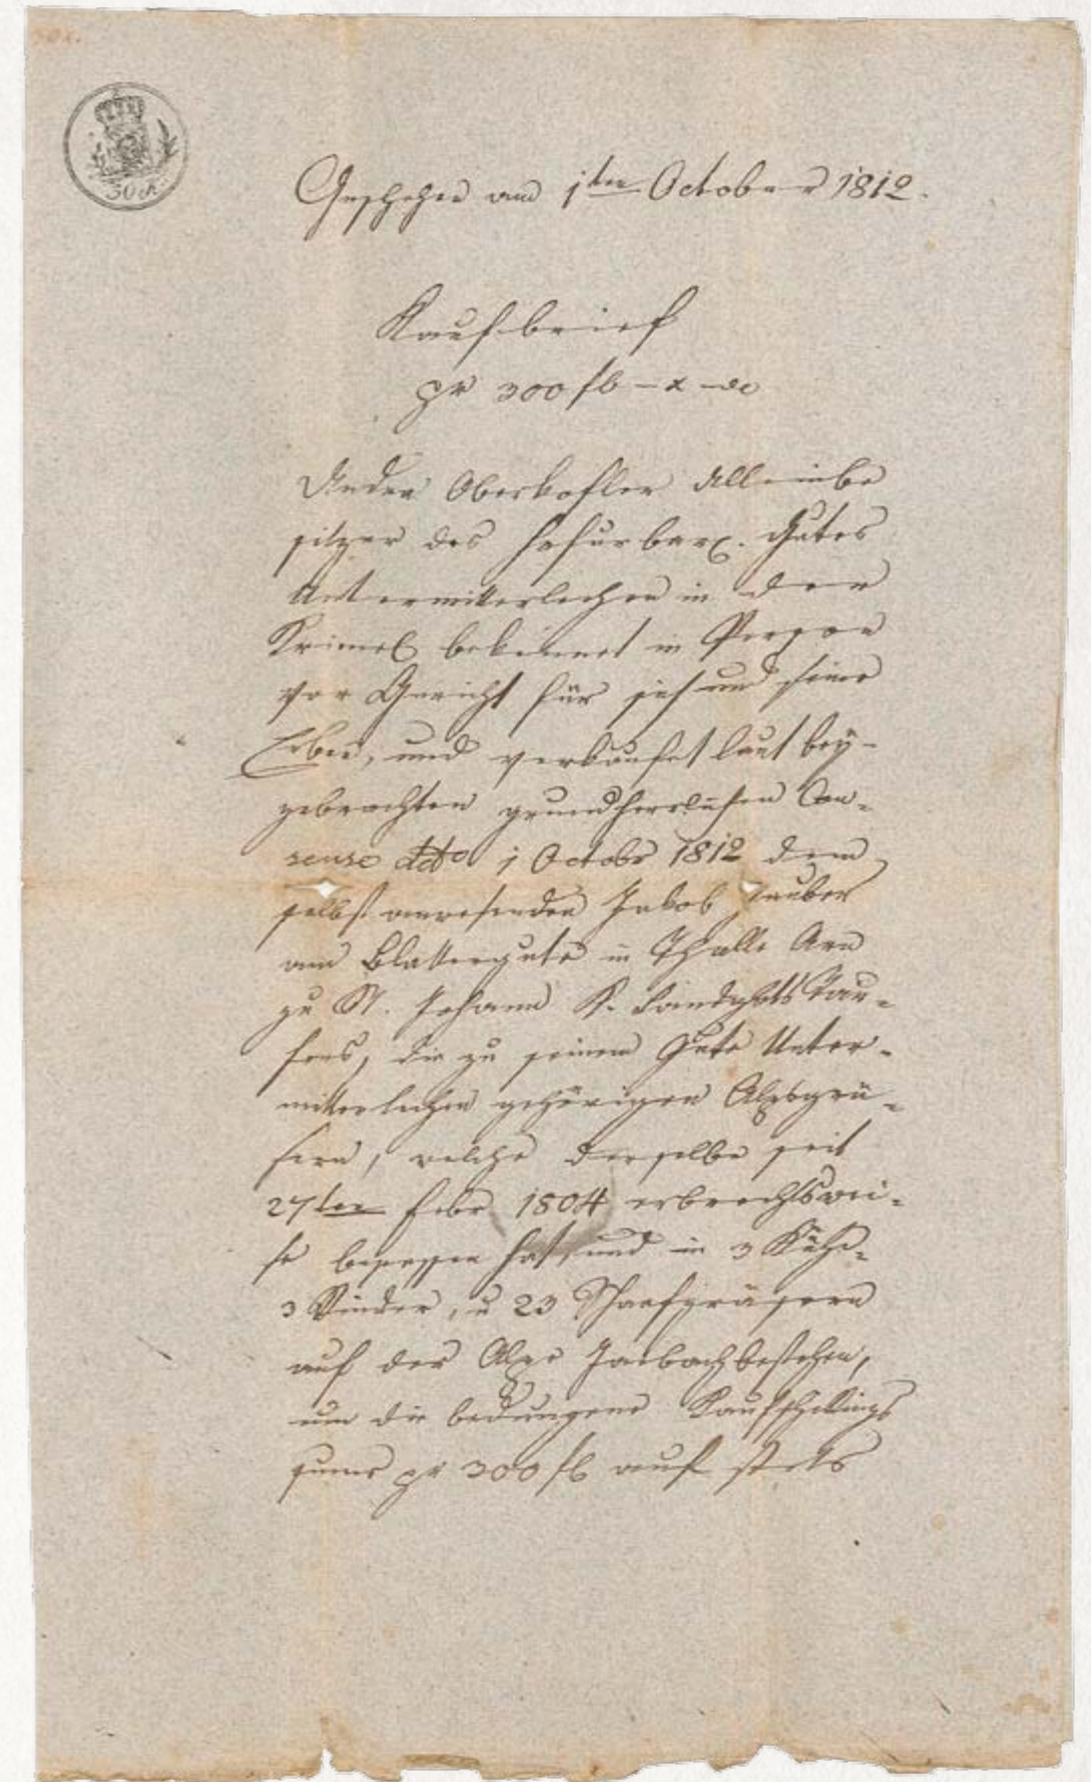 30 x.
Geschehen am 1ten October 1812.
Kaufbrief
pr 300 fl – x – dl
Andrä Oberkofler Alleinbe
sitzer des hofurbarl. Gutes
Untermitterlechen in der
Kriml bekennet in Person
vor Gericht für sich und seine
Erben, und verkaufet laut bey-
gebrachten grundherrlichen Con-
sense ddto 1 Octobr 1812 dem
selbst anwesenden Jakob Tauber
am Blattergute in Thalle Arn
zu St. Johann K. Landghts Tau-
fers, die zu seinem Gute Unter-
mitterlechen gehörigen Alpsgrä-
sern, welche derselbe seit
27ten Febr 1804 erbrechtswei-
se besessen hat, und in 3 Kühe-
3 Rinder, u 23 Schaafgräsern
auf der Alpe Jaibach bestehen,
um die bedungene Kaufschillings
sume pr 300 fl auf stets